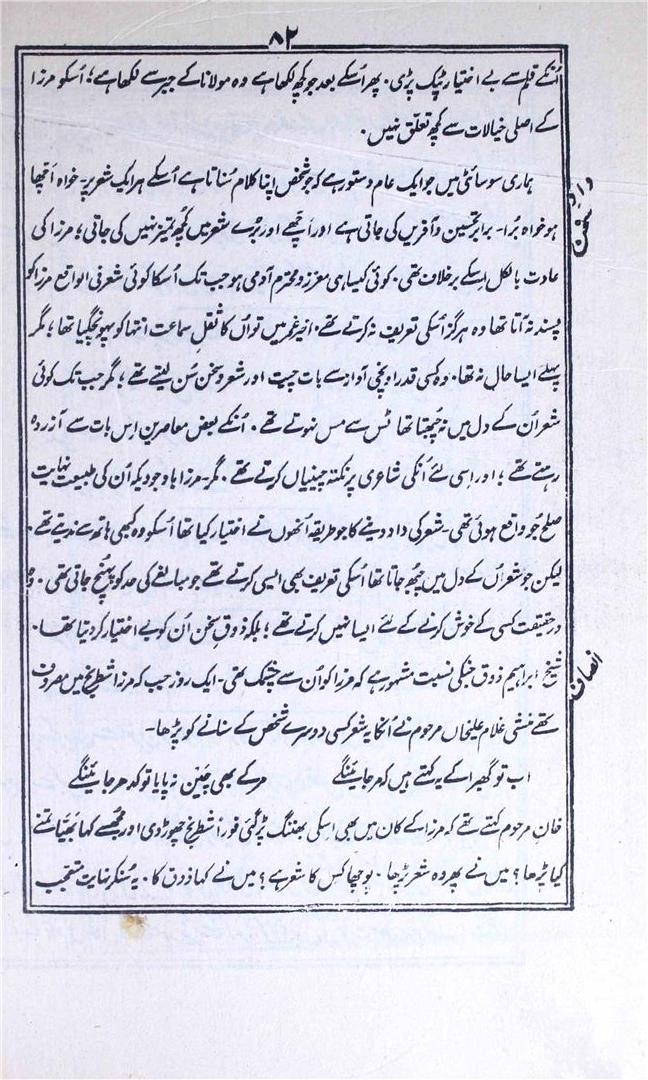 ۸۲
اُنکے قلم سے بے اختیار ٹپک پڑی۔ پھر اُسکے بعد جو کچھ لکھا ہے وہ مولانا کے جبر سے لکھا ہے؛ اُسکو مرزا
کے اصلی خیالات سے کچھ تعلّق نہیں۔
داد سخن
ہماری سوسائٹی میں جو ایک عام دستور ہے کہ جو شخص اپنا کلام سُناتا ہے اُسکے ہر ایک شعر پر۔ خواہ اَچھا
ہو خواہ بُرا۔ برابر تحسین و آفریں کی جاتی ہے اور اَچھے اور بُرے شعر میں کُچھ تمیز نہیں کی جاتی؛ مرزا کی
عادت بالکل اِسکے برخلاف تھی۔ کوئی کیسا ہی معزز و محترم آدمی ہو جب تک اُسکا کوئی شعر فی الواقع مرزا کو
پسند نہ آتا تھا وہ ہرگز اُسکی تعریف نہ کرتے تھے۔ اخیر عمر میں تو اُن کا ثقلِ سماعت انتہا کو پہونچگیا تھا؛ مگر
پہلے ایسا حال نہ تھا۔ وہ کسی قدر اونچی آواز سے بات چیت اور شعر و سخن سُن لیتے تھے؛ مگر جب تک کوئی
شعر اُن کے دل میں نہ چُبھتا تھا ٹس سے مس نہوتے تھے۔ اُنکے بعض معاصرین اِس بات سے آزردہ
رہتے تھے؛ اور اِسی لئے اُنکی شاعری پر نکتہ چینیاں کرتے تھے۔ مگر۔ مرزا باوجودیکہ اُن کی طبیعت نہایت
صلح جُو واقع ہوئی تھی۔ شعر کی داد دینے کا جو طریقہ اُنھوں نے اختیار کیا تھا اُسکو وہ کبھی ہاتھ سے ندیتے تھے۔
لیکن جو شعر اُن کے دل میں چُبھ جاتا تھا اُسکی تعریف بھی ایسی کرتے تھے جو مبالغے کی حد کو پہُنچ جاتی تھی۔ وہ
درحقیقت کسی کے خوش کرنے کے لئے ایسا نہیں کرتے تھے؛ بلکہ ذوقِ سخن اُن کو بے اختیار کر دیتا تھا۔
انصاف
شیخ ابراہیم ذوق جنکی نسبت مشہور ہے کہ مرزا کو اُن سے چشمک تھی۔ ایک روز جب کہ مرزا شطرنج میں مصروف
تھے منشی غلام علیخاں مرحوم نے اُنکا یہ شعر کسی دوسرے شخص کے سنانے کو پڑھا۔
اب تو گھبرا کے یہ کہتے ہیں کہ مر جائینگے مر کے بھی چَین نہ پایا تو کدھر جائینگے
خان مرحوم کہتے تھے کہ مرزا کے کان میں بھی اِسکی بھنک پڑ گئی فوراً شطرنج چھوڑ دی اور مُجھسے کہا بَھیّا تمنے
کیا پڑھا؟ میں نے پھر وہ شعر پڑھا۔ پوچھا کِس کا شعر ہے؟ میں نے کہا ذوق کا۔ یہ سُنکر نہایت متعجب